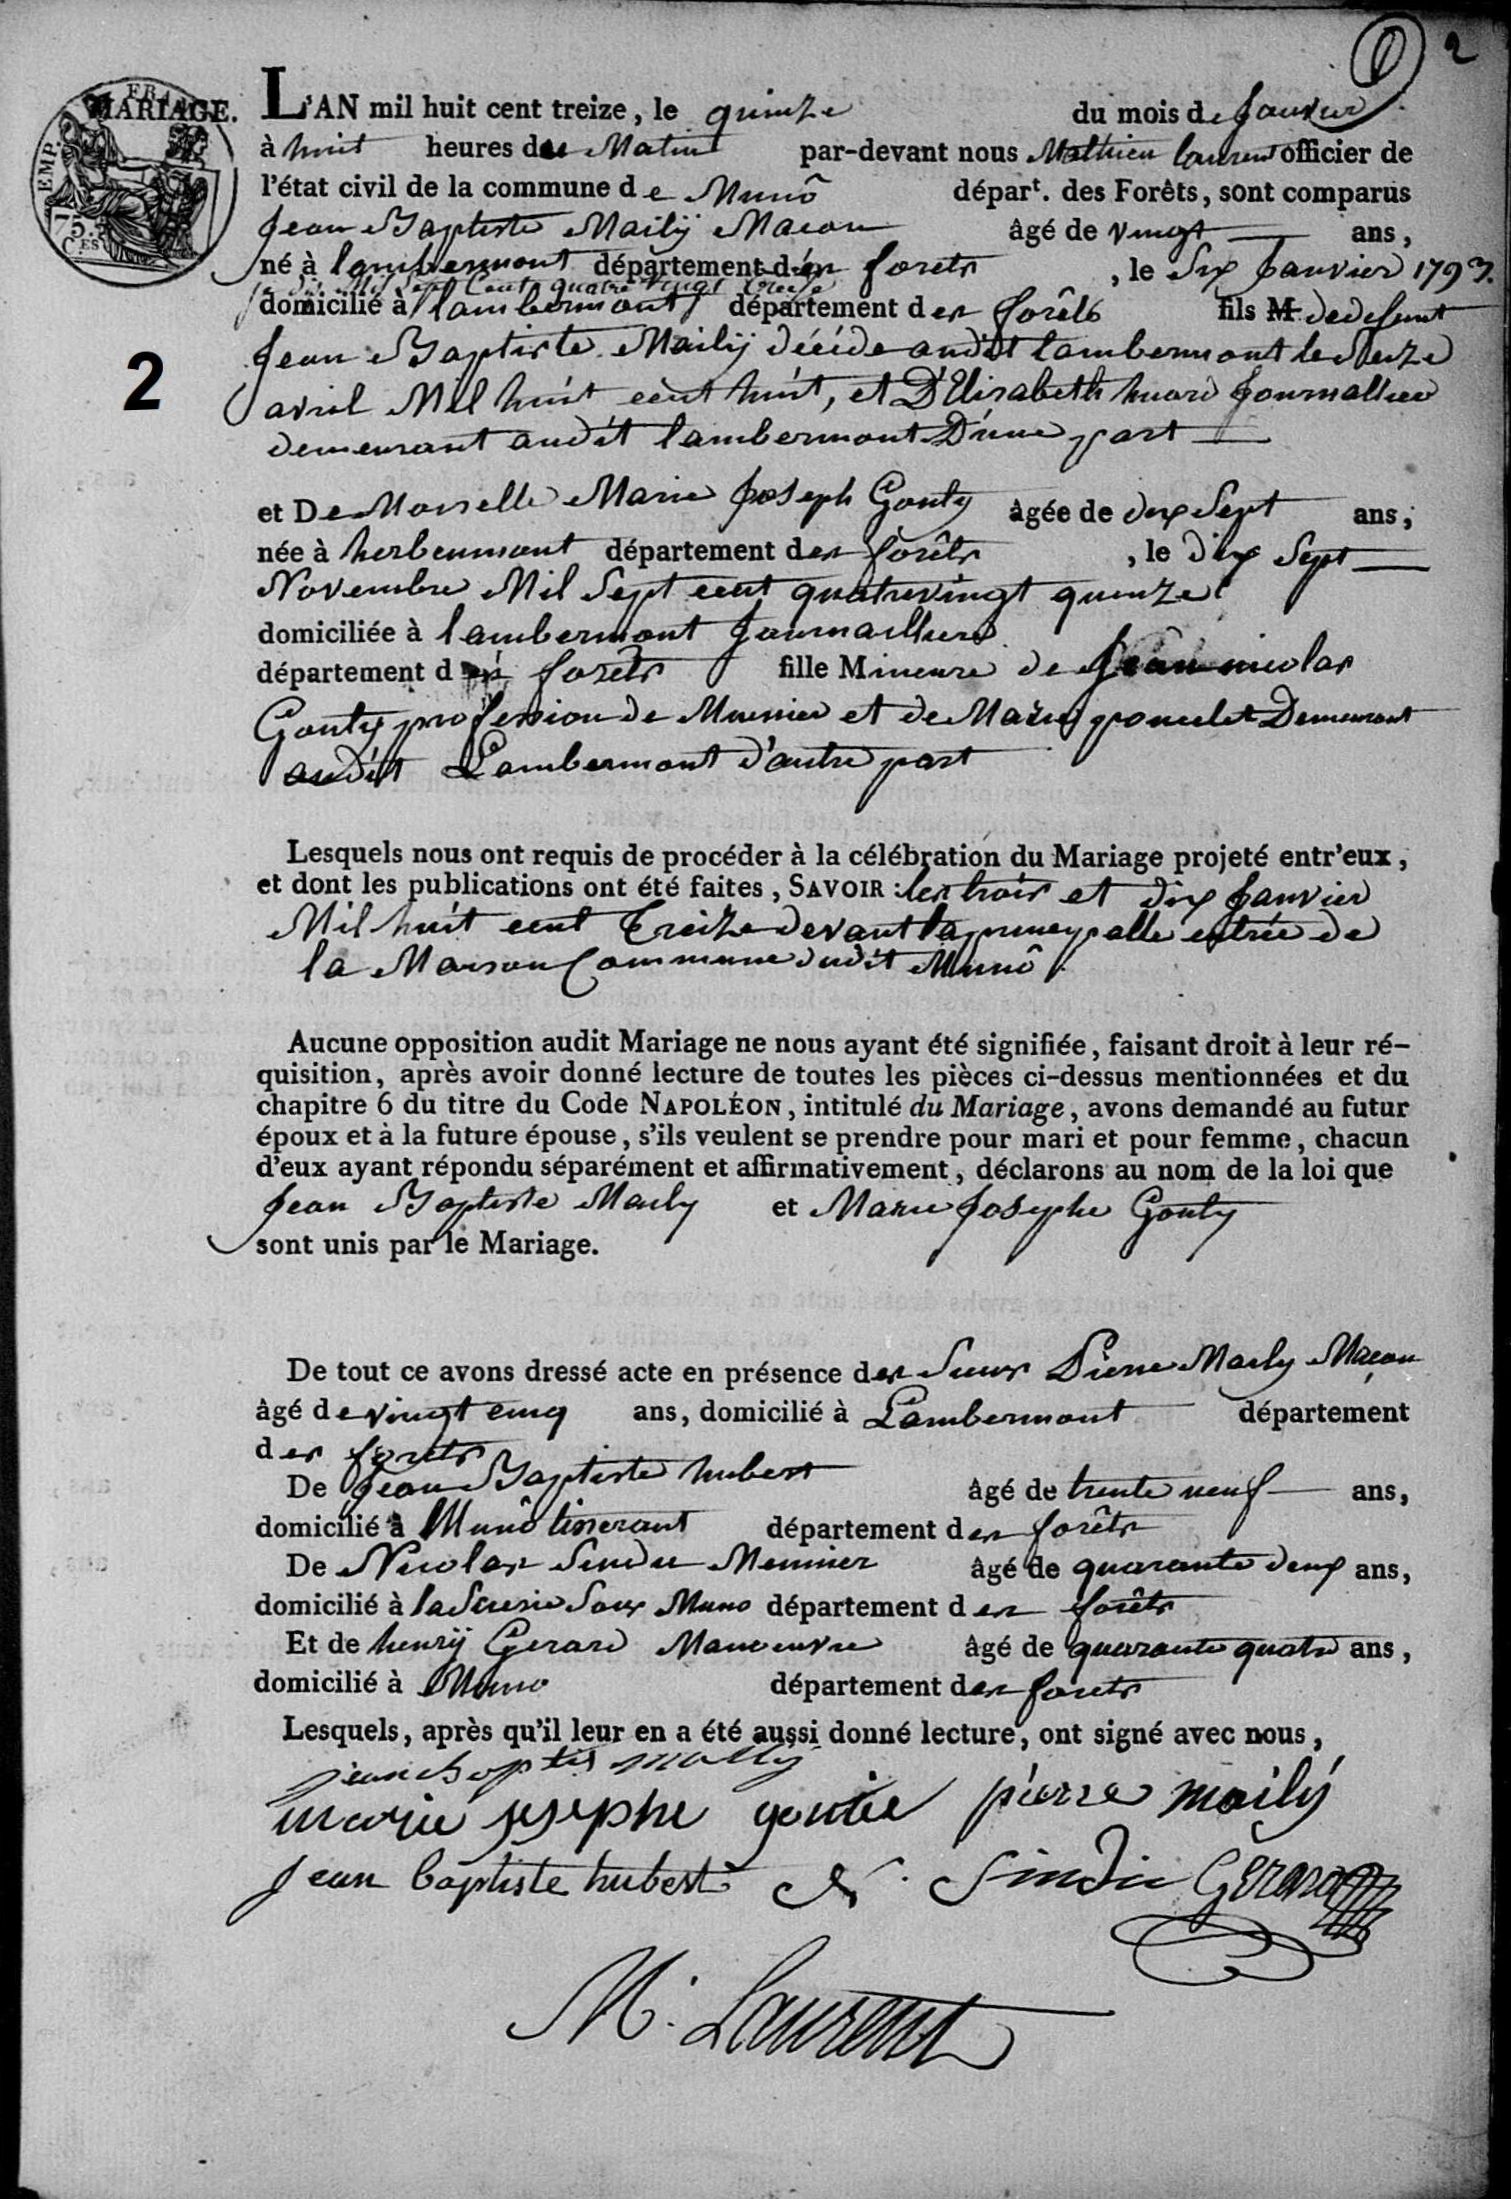 ① 2
MARIAGE.
FRAN
EMP.
75.
C.ES
2
L'AN mil huit cent treize, le quinze du mois de Janvier
à huit heures du Matin par-devant nous Mathieu Laurent officier de
l'état civil de la commune de Munô départ. des Forêts, sont comparus
Jean Baptiste Mailÿ Macon âgé de vingt ans,
né à lambermont département des forets, le Six Janvier 1793.
je dis Mil Sept Cent quatre vingt treize
domicilié à lambermont département des forêts fils M dedefunt
Jean Baptiste Mailÿ décéde audit lambermont le Seize
avril Mil huit cent huit, et D'Elisabeth huard Journalliere
demeurant audit lambermont D'une part
et DeMoiselle Marie Joseph Gouty âgée de dix Sept ans,
née à herbeumont département des forêts, le dix Sept
Novembre Mil Sept cent quatrevingt quinze
domiciliée à lambermont Journalliere
département des forêts fille Mineure de Jean nicolas
Gouty profession de Munier et de Marie poncelet Demeurant
audit Lambermont d'autre part
Lesquels nous ont requis de procéder à la célébration du Mariage projeté entr'eux,
et dont les publications ont été faites, SAVOIR : les trois et dix Janvier
Mil huit cent Treize devant la principalle entrée de
la Maison Commune dudit Munô
Aucune opposition audit Mariage ne nous ayant été signifiée, faisant droit à leur ré-
quisition, après avoir donné lecture de toutes les pièces ci-dessus mentionnées et du
chapitre 6 du titre du Code NAPOLÉON, intitulé du Mariage, avons demandé au futur
époux et à la future épouse, s'ils veulent se prendre pour mari et pour femme, chacun
d'eux ayant répondu séparément et affirmativement, déclarons au nom de la loi que
Jean Baptiste Maily et Marie Josephe Gouty
sont unis par le Mariage.
De tout ce avons dressé acte en présence des Sieurs Pierre Maily Maçon
âgé de vingt cinq ans, domicilié à Lambermont département
des forets
De Jean Baptiste hubert âgé de trente neuf ans,
domicilié à Munô tisserant département des forêts
De Nicolas Sindic Meunier âgé de quarante deux ans,
domicilié à la Scierie Sous Muno département des forêts
Et de henrÿ Gerard Manoeuvre âgé de quarante quatre ans,
domicilié à Muno département des forets
Lesquels, après qu'il leur en a été aussi donné lecture, ont signé avec nous,
jean baptis maily
marie josephe goutie pierre mailÿ
Jean baptiste hubert N. Sindic Gerard
M. Laurent